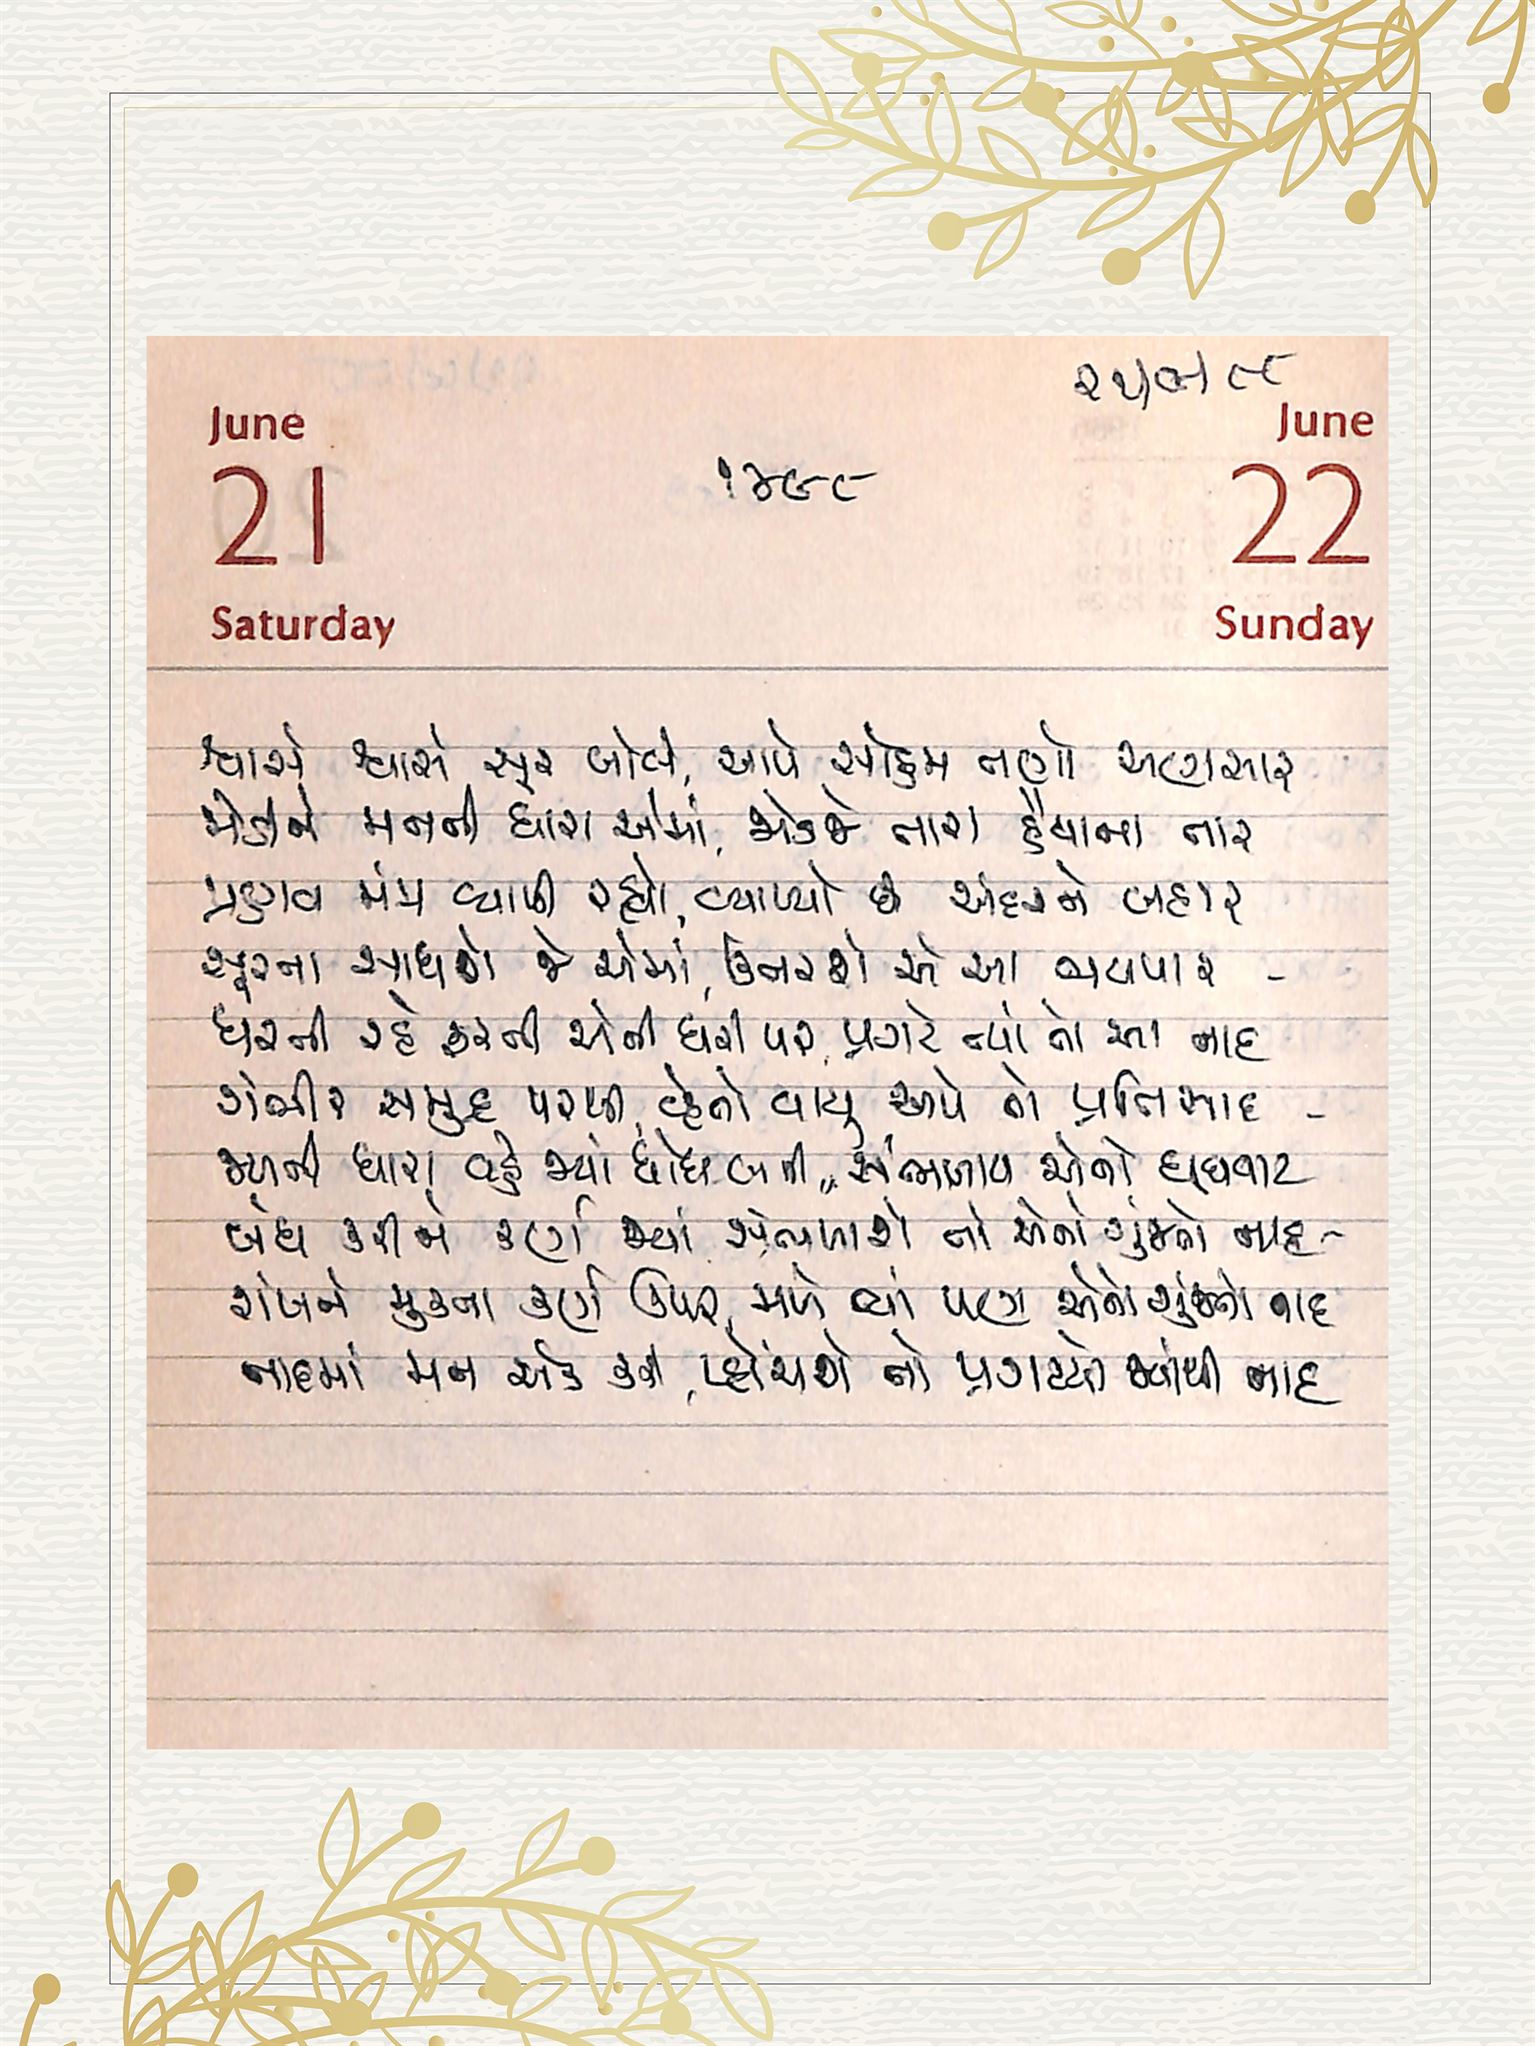 ૨૫/૭/૮૮
June
21
Saturday
૧૪૯૮
June
22
Sunday
શ્વાસે શ્વાસે સૂર બોલે, આપે સોહમ તણો અણસાર
જોડીને મનની ધારા એમાં, જોડજે તારા હૈયાના તાર
પ્રણવ મંત્ર વ્યાપી રહ્યો, વ્યાપ્યો છે અંદરને બહાર
સૂરના સાધશે જે એમાં, ઉતરશે એ આ ભવપાર -
ધરતી રહે ફરતી એની ધરી પર, પ્રગટે ત્યાં તો આ નાદ
ગંભીર સમુદ્ર પરથી, વ્હેતો વાયુ આપે તો પ્રતિસાદ -
જળની ધારા વહે જ્યાં ધોધ બની, સંભળાય એનો ઘૂઘવાટ
બંધ કરીને કર્ણ જ્યાં સાંભળશે તો એનો ગુંજતો નાદ -
શંખને મુકતા કર્ણ ઉપર, મળે ત્યાં પણ એનો ગુંજતો નાદ
નાદમાં મન એક કરી, પ્હોંચશે તો પ્રગટ્યો જ્યાંથી નાદ